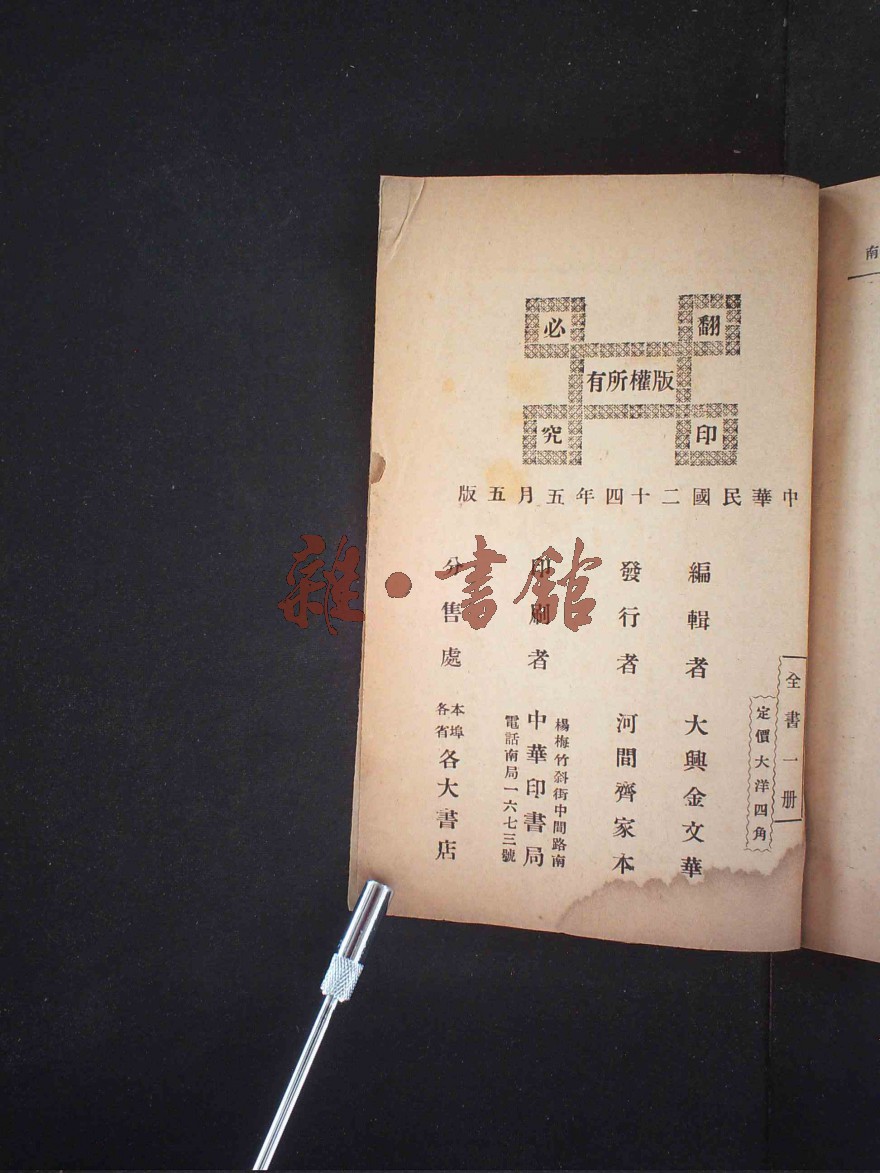 翻印必究
版權所有
中華民國二十四年五月五版
全書一册
定價大洋四角
編輯者 大興金文華
發行者 河間齊家本
楊梅竹斜街中間路南
印刷者 中華印書局
電話南局一六七三號
分售處 本埠各省各大書店
雜·書館
南